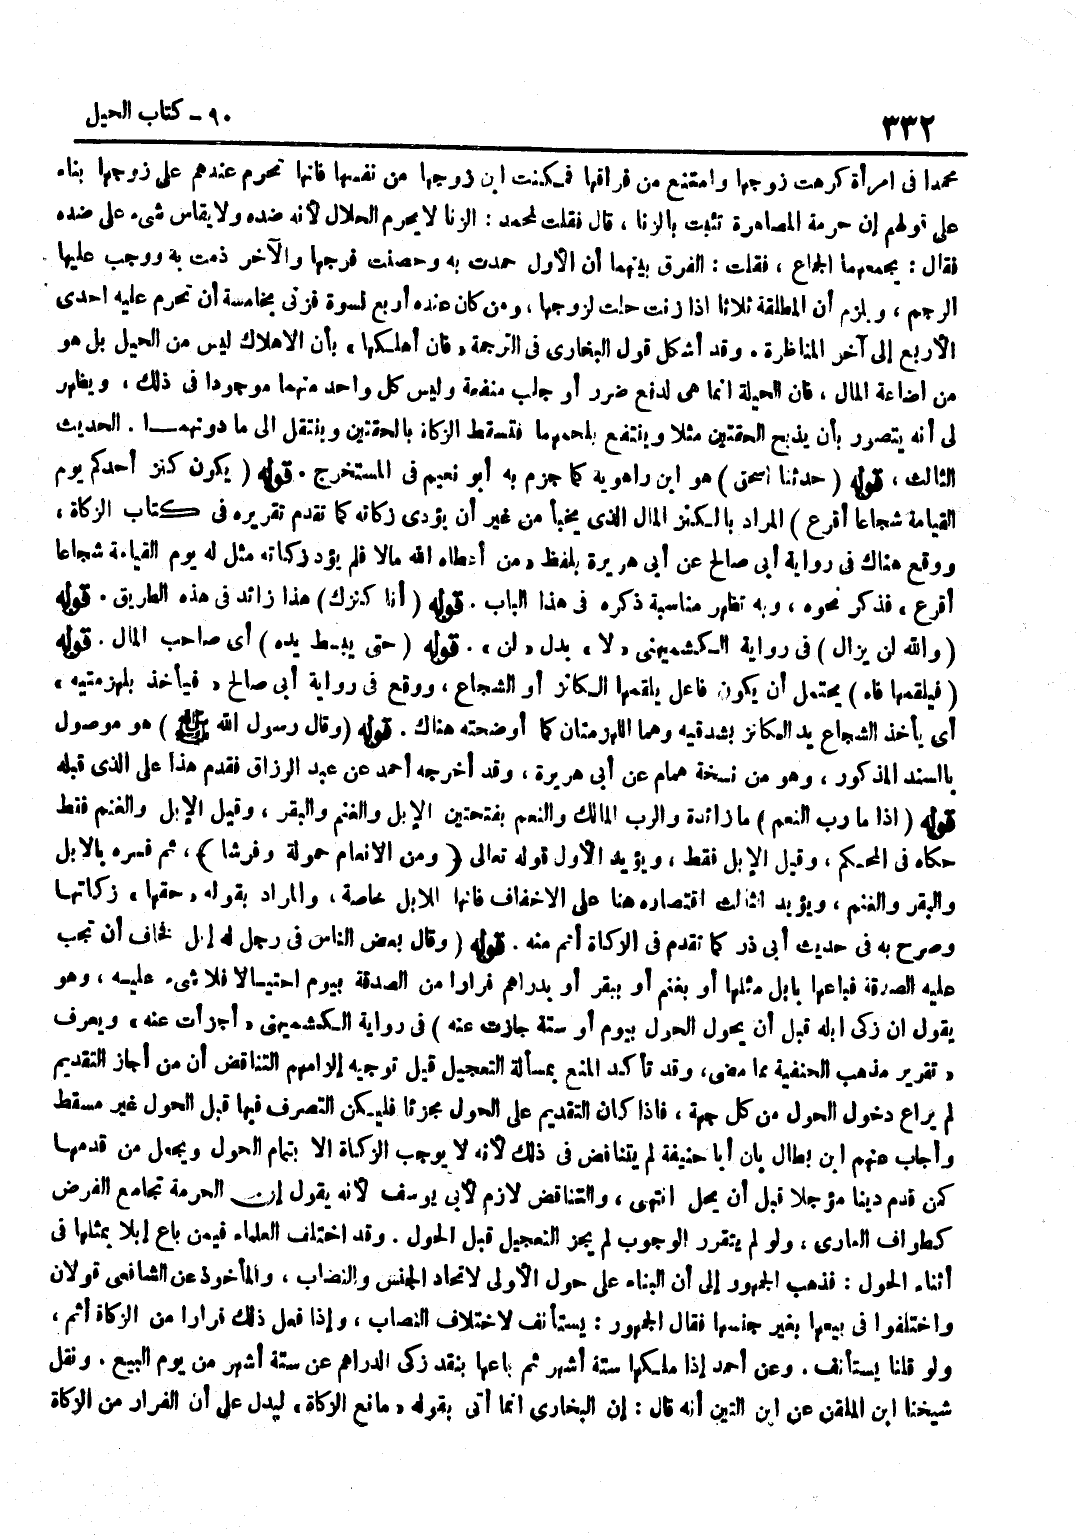 ٣٣٢
٩٠ - كتاب الحيل
محمدا فى امرأة كرهت زوجها وامتنع من فراقها فمكنت ابن زوجها من نفسها فانها تحرم عندهم على زوجها بناء
على قولهم إن حرمة المصاهرة تثبت بالزنا ، قال فقلت لمحمد : الزنا لا يحرم الحلال لأنه ضده ولا يقاس شىء على ضده
فقال : يجمعهما الجماع ، فقلت : الفرق بينهما أن الأول حمدت به وحصنت فرجها والآخر ذمت به ووجب عليها
الرجم ، ويلزم أن المطلقة ثلاثا اذا زنت حلت لزوجها ، ومن كان عنده أربع نسوة فزنى بخامسة أن تحرم عليه احدى
الأربع إلى آخر المناظرة . وقد أشكل قول البخارى فى الترجمة « فان أهلكها » بأن الاهلاك ليس من الحيل بل هو
من اضاعة المال ، فان الحيلة انما هى لدفع ضرر أو جلب منفعة وليس كل واحد منهما موجودا فى ذلك ، ويظهر
لى أنه يتصور بأن يذبح الحقتين مثلا وينتفع بلحمهما فتسقط الزكاة بالحقتين وينتقل الى ما دونهمـــا . الحديث
الثالث ، قوله ( حدثنا اسحق ) هو ابن راهويه كما جزم به أبو نعيم فى المستخرج . قوله ( يكون كنز أحدكم يوم
القيامة شجاعا أقرع ) المراد بالكنز المال الذى يخبأ من غير أن يؤدى زكاته كما تقدم تقريره فى كتاب الزكاة ،
ووقع هناك فى رواية أبى صالح عن أبى هريرة بلفظ « من أعطاه الله مالا فلم يؤد زكاته مثل له يوم القيامة شجاعا
أقرع » فذكر نحوه ، وبه تظهر مناسبة ذكره فى هذا الباب . قوله ( أنا كنزك ) هذا زائد فى هذه الطريق . قوله
( والله لن يزال ) فى رواية الكشميهنى « لا » بدل « لن » . قوله ( حتى يبسط يده ) أى صاحب المال . قوله
( فيلقمها فاه ) يحتمل أن يكون فاعل يلقمها الكانز أو الشجاع ، ووقع فى رواية أبى صالح « فيأخذ بلهزمتيه »
أى يأخذ الشجاع يد الكانز بشدقيه وهما اللهزمتان كما أوضحته هناك . قوله ( وقال رسول الله ﷺ ) هو موصول
بالسند المذكور ، وهو من نسخة همام عن أبى هريرة ، وقد أخرجه أحمد عن عبد الرزاق فقدم هذا على الذى قبله
قوله ( اذا ما رب النعم ) ما زائدة والرب المالك والنعم بفتحتين الإبل والغنم والبقر ، وقيل الإبل والغنم فقط
حكاه فى المحكم ، وقيل الإبل فقط ، ويؤيد الأول قوله تعالى ﴿ ومن الانعام حمولة وفرشا ﴾ ، ثم فسره بالابل
والبقر والغنم ، ويؤيد الثالث اقتصاره هنا على الاخفاف فانها للابل خاصة ، والمراد بقوله « حقها » زكاتهـا
وصرح به فى حديث أبى ذر كما تقدم فى الزكاة أتم منه . قوله ( وقال بعض الناس فى رجل له إبل فخاف أن تجب
عليه الصدقة فباعها بابل مثلها أو بغنم أو ببقر أو بدراهم فرارا من الصدقة بيوم احتيـالا فلا شىء عليـه ، وهو
يقول ان زكى ابله قبل أن يحول الحول بيوم أو ستة جازت عنه ) فى رواية الكشميهنى « أجزأت عنه » ويعرف
« تقرير مذهب الحنفية بما مضى، وقد تأكد المنع بمسألة التعجيل قيل توجيه إلزامهم التناقض أن من أجاز التقديم
لم يراع دخول الحول من كل جهة ، فاذا كان التقديم على الحول مجزئا فليكن التصرف فيها قبل الحول غير مسقط
وأجاب عنهم ابن بطال بان أبا حنيفة لم يتناقض فى ذلك لأنه لا يوجب الزكاة الا بتمام الحول ويجعل من قدمهـا
كمن قدم دينا مؤجلا قبل أن يحل انتهى ، والتناقض لازم لأبى يوسف لأنه يقول إن الحرمة تجامع الفرض
كطواف العارى ، ولو لم يتقرر الوجوب لم يجز التعجيل قبل الحول . وقد اختلف العلماء فيمن باع إبلا بمثلها فى
أثناء الحول : فذهب الجمهور إلى أن البناء على حول الأولى لاتحاد الجنس والنصاب ، والمأخوذ عن الشافعى قولان
واختلفوا فى بيعها بغير جنسها فقال الجمهور : يستأنف لاختلاف النصاب ، وإذا فعل ذلك فرارا من الزكاة أثم ،
ولو قلنا يستأنف . وعن أحمد إذا ملكها ستة أشهر ثم باعها بنقد زكى الدراهم عن ستة أشهر من يوم البيع . ونقل
شيخنا ابن الملقن عن ابن التين أنه قال : إن البخارى انما أتى بقوله « مانع الزكاة » ليدل على أن الفرار من الزكاة